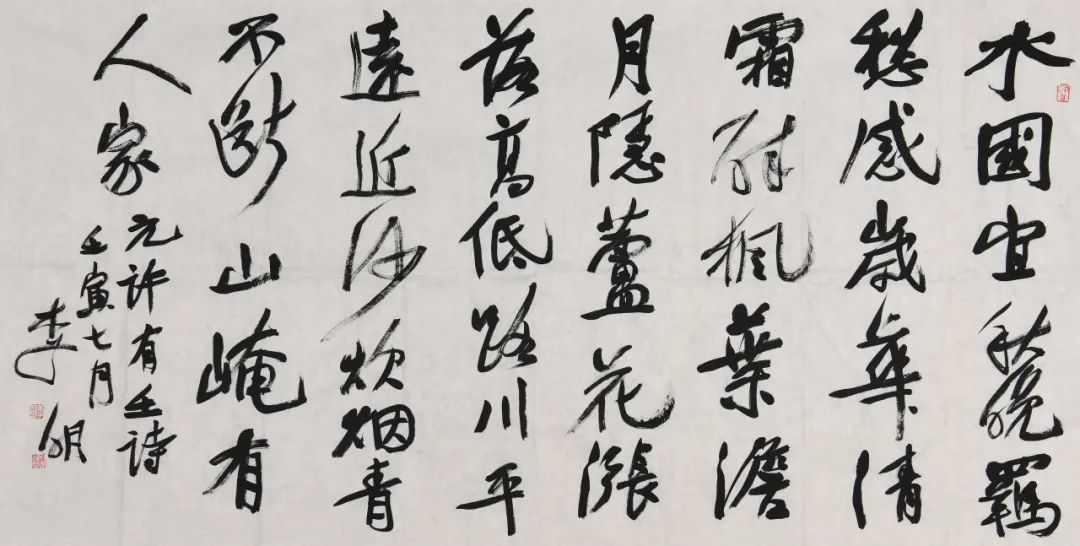 水國宜秋晚羈
愁感歲華清
霜醉楓葉澹
月隱蘆花漲
落高低路川平
遠近沙炊烟青
不斷山崦有
人家
元許有壬詩
壬寅七月
李明